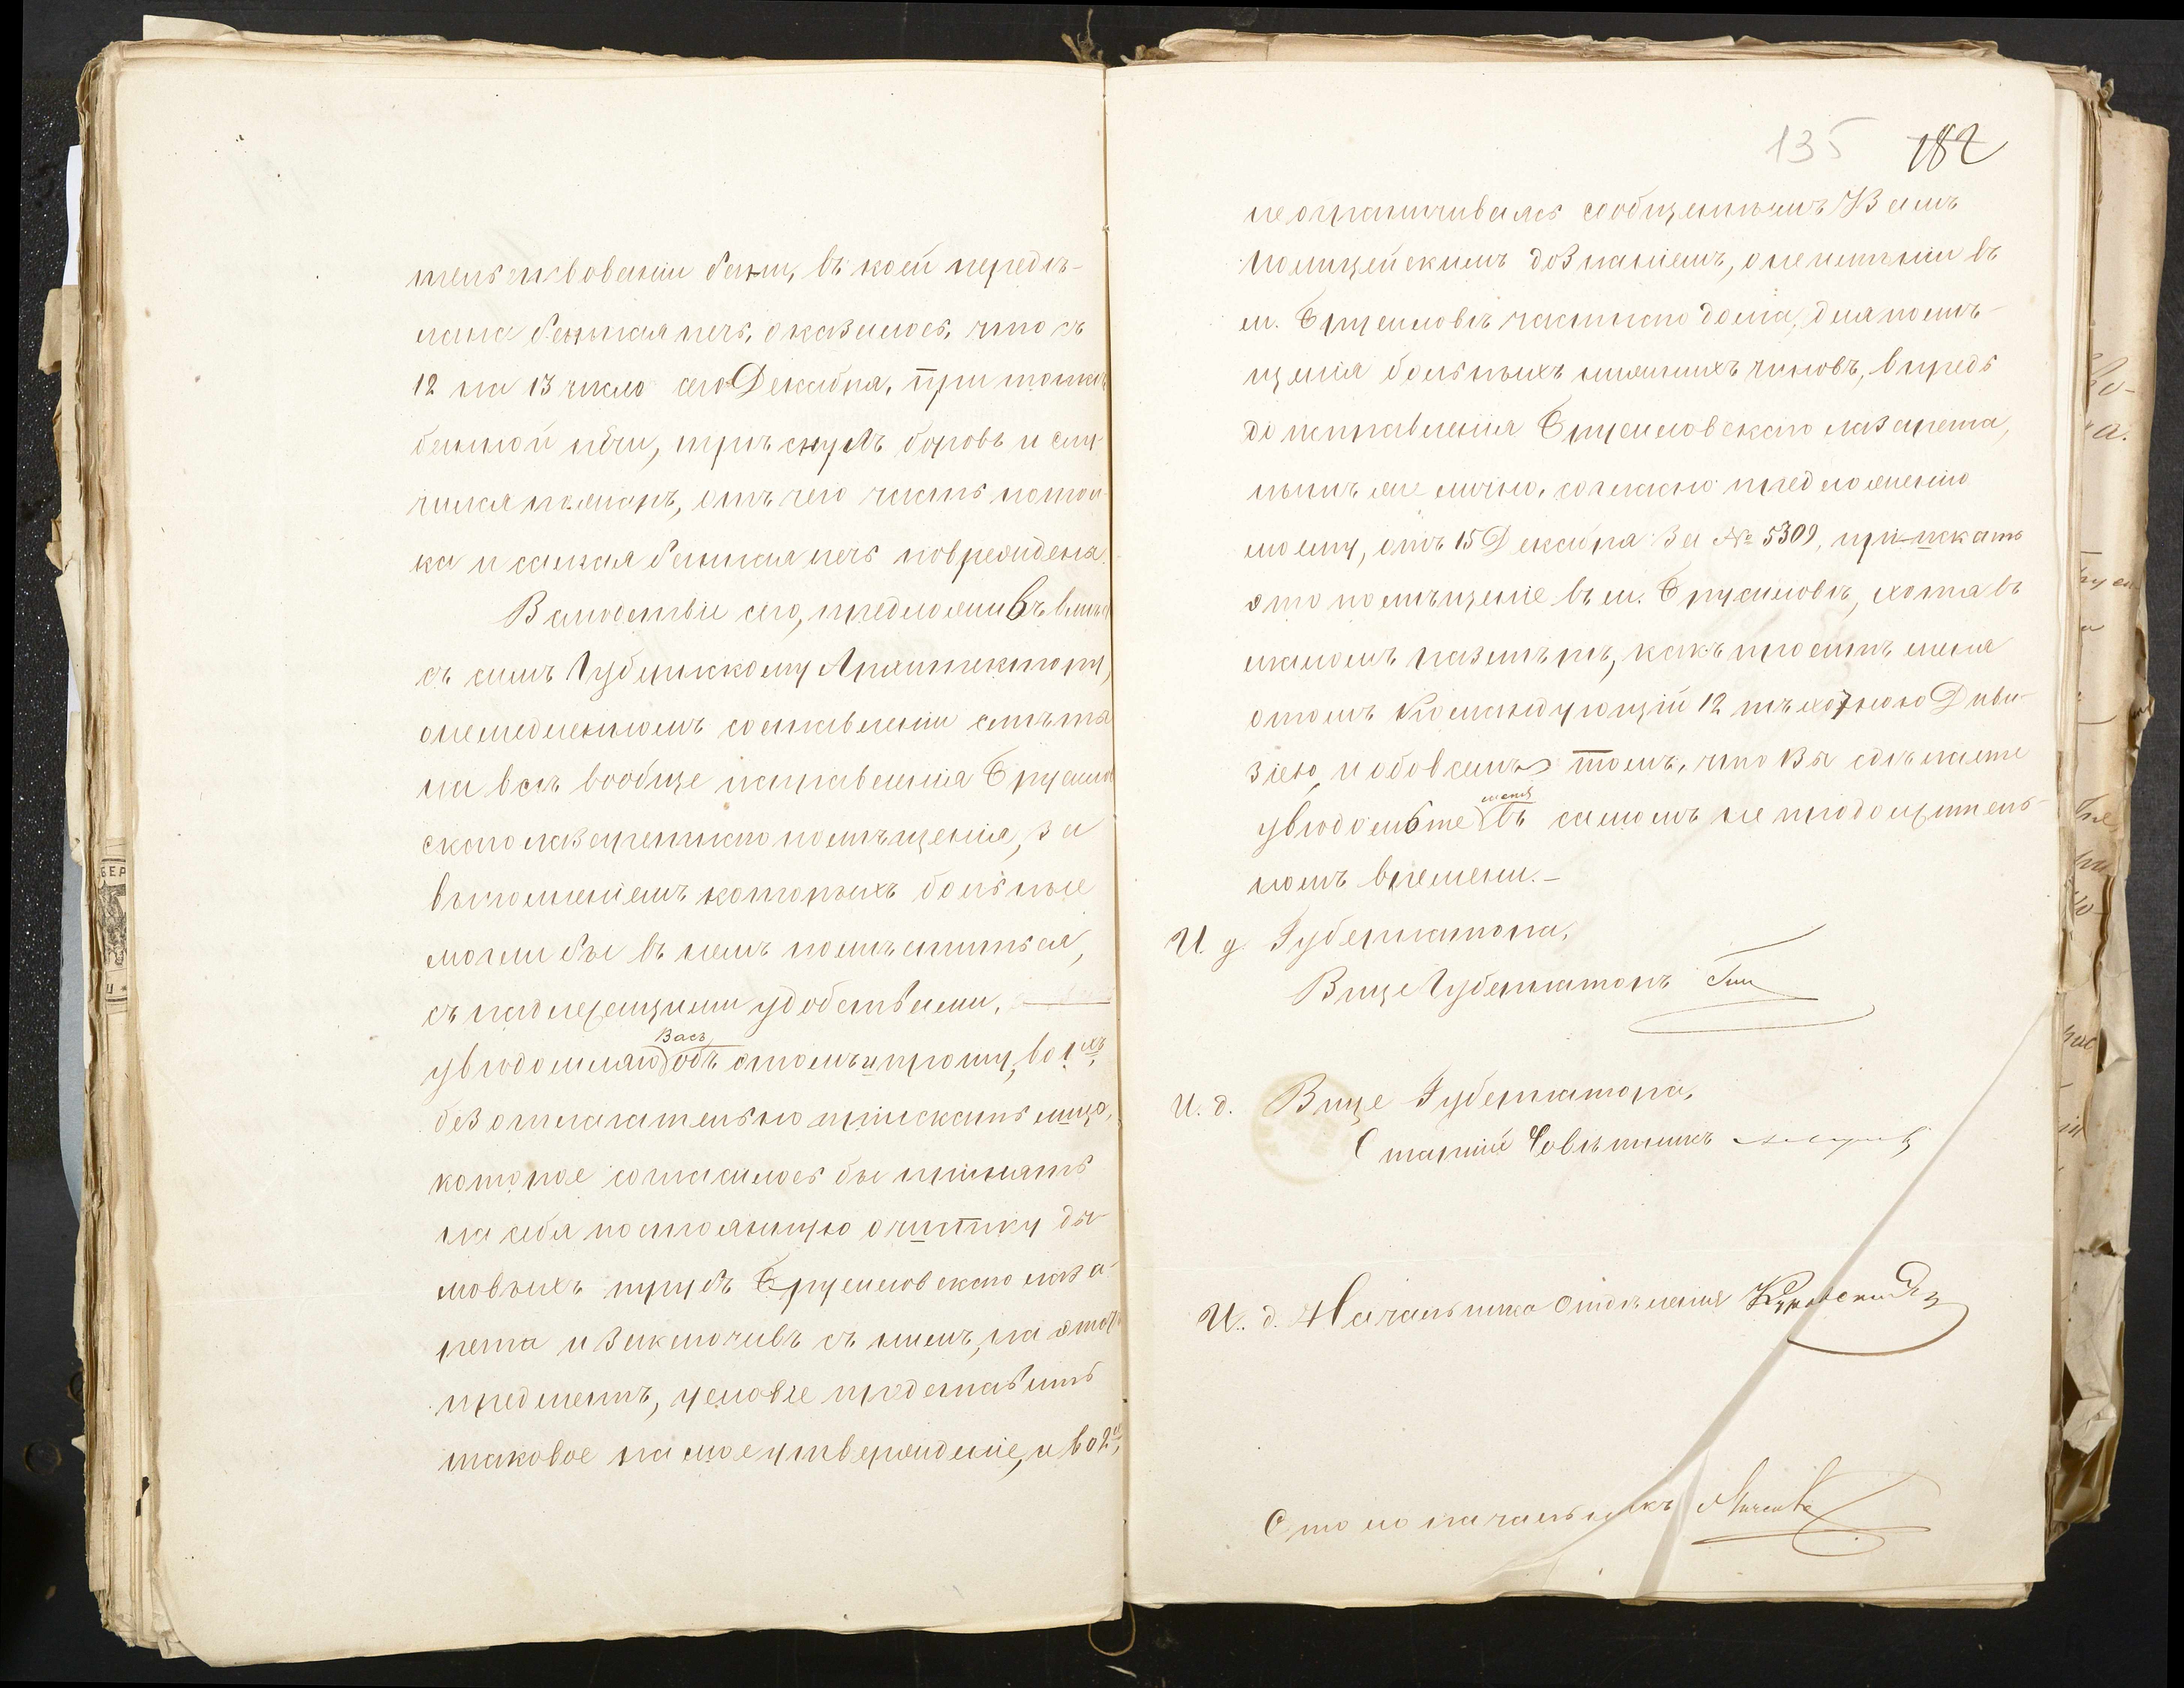 тельствовании бани, въ коей передѣ-
лана банная печь, оказалось, что съ
12 на 13 число сего Декабря, при топкѣ
банной печи, треснулъ боровъ и слу-
чился пожаръ, отъ чего часть потол-
ка и самая банная печь повреждена.
Вслѣдствіе сего, предложивъ вмѣстѣ
съ симъ Губернскому Архитектору,
о немедленномъ составленіи смѣты
на всѣ вообще исправленія Брусилов
скаго лазаретнаго помѣщенія, за
выполненіемъ которыхъ больные
могли бы въ немъ помѣститься,
съ надлежащими удобствами,
увѣдомляю Васъ объ этомъ и прошу, во 1хъ,
безотлагательно пріискать лицо,
которое согласилось бы принять
на себя постоянную очистку ды-
мовыхъ трубъ Брусиловскаго лаза-
рета и заключивъ съ нимъ, на этотъ
предметъ, условіе представить
таковое на мое утвержденіе, и во 2хъ,
135 182
не ограничиваясь сообщеннымъ Вамъ
Полицейскимъ дознаніемъ, о неимѣніи въ
м. Брусиловѣ частнаго дома, для помѣ-
щенія больныхъ нижнихъ чиновъ, впредь
до исправленія Брусиловскаго лазарета,
нынѣ же лично, согласно предложенію
моему, отъ 15 Декабря за № 5309, пріискать
это помѣщеніе въ м. Брусиловѣ, хотя въ
маломъ размѣрѣ, какъ проситъ меня
о томъ Командующій 12 пѣхотною Диви-
зіею, и обо всемъ томъ, что Вы сдѣлаете
увѣдомьте меня въ самомъ не продолжитель-
номъ времени.—
И. д. Губернатора,
Вице Губернаторъ
И. д. Вице Губернатора,
Старшій Совѣтникъ
И. д. Начальника Отдѣленія
Столоначальникъ